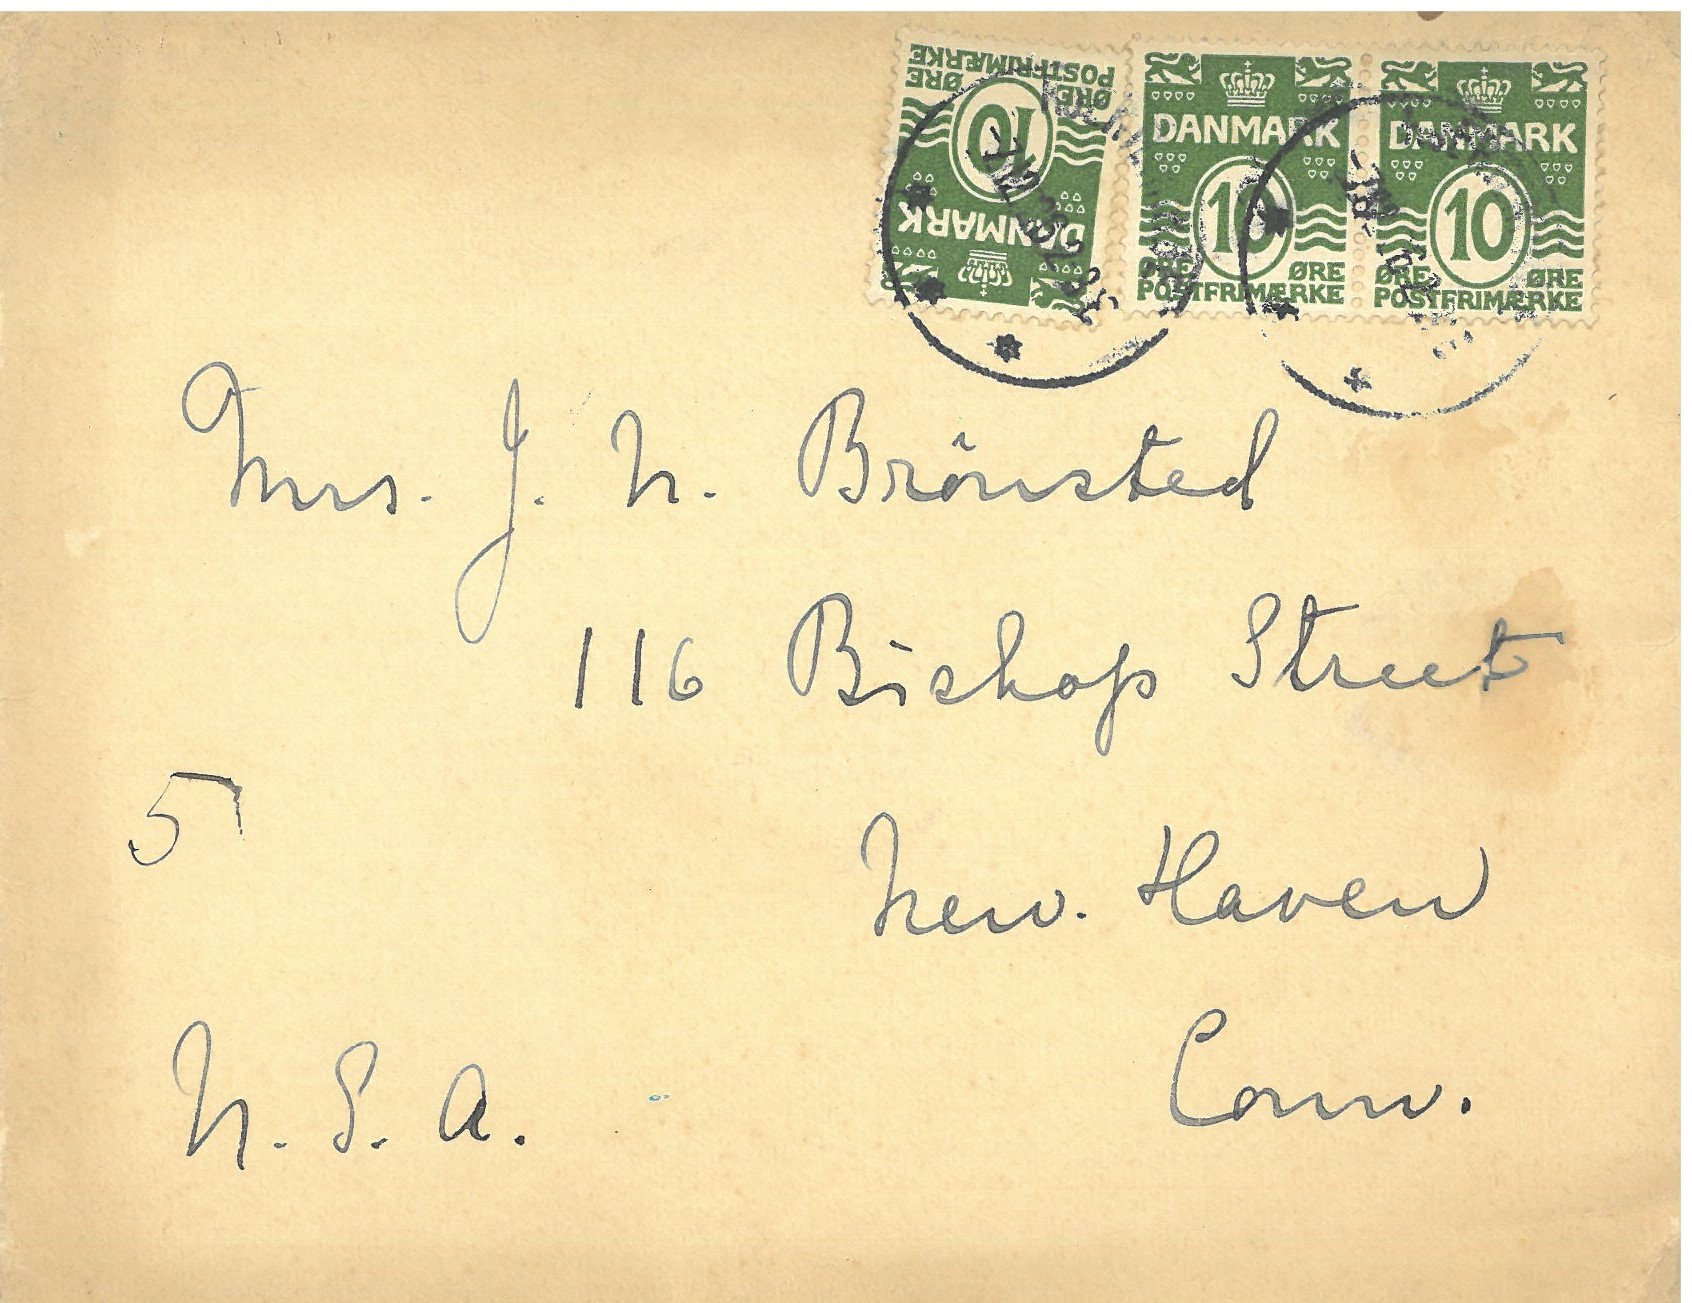 ØRE ØRE
POSTFRIMÆRKE
10
DANMARK
DANMARK
10
ØRE ØRE
POSTFRIMÆRKE
DANMARK
10
ØRE ØRE
POSTFRIMÆRKE
Mrs. J. N. Brönsted
116 Bishop Street
5
New. Haven
Conn.
U. S. A.